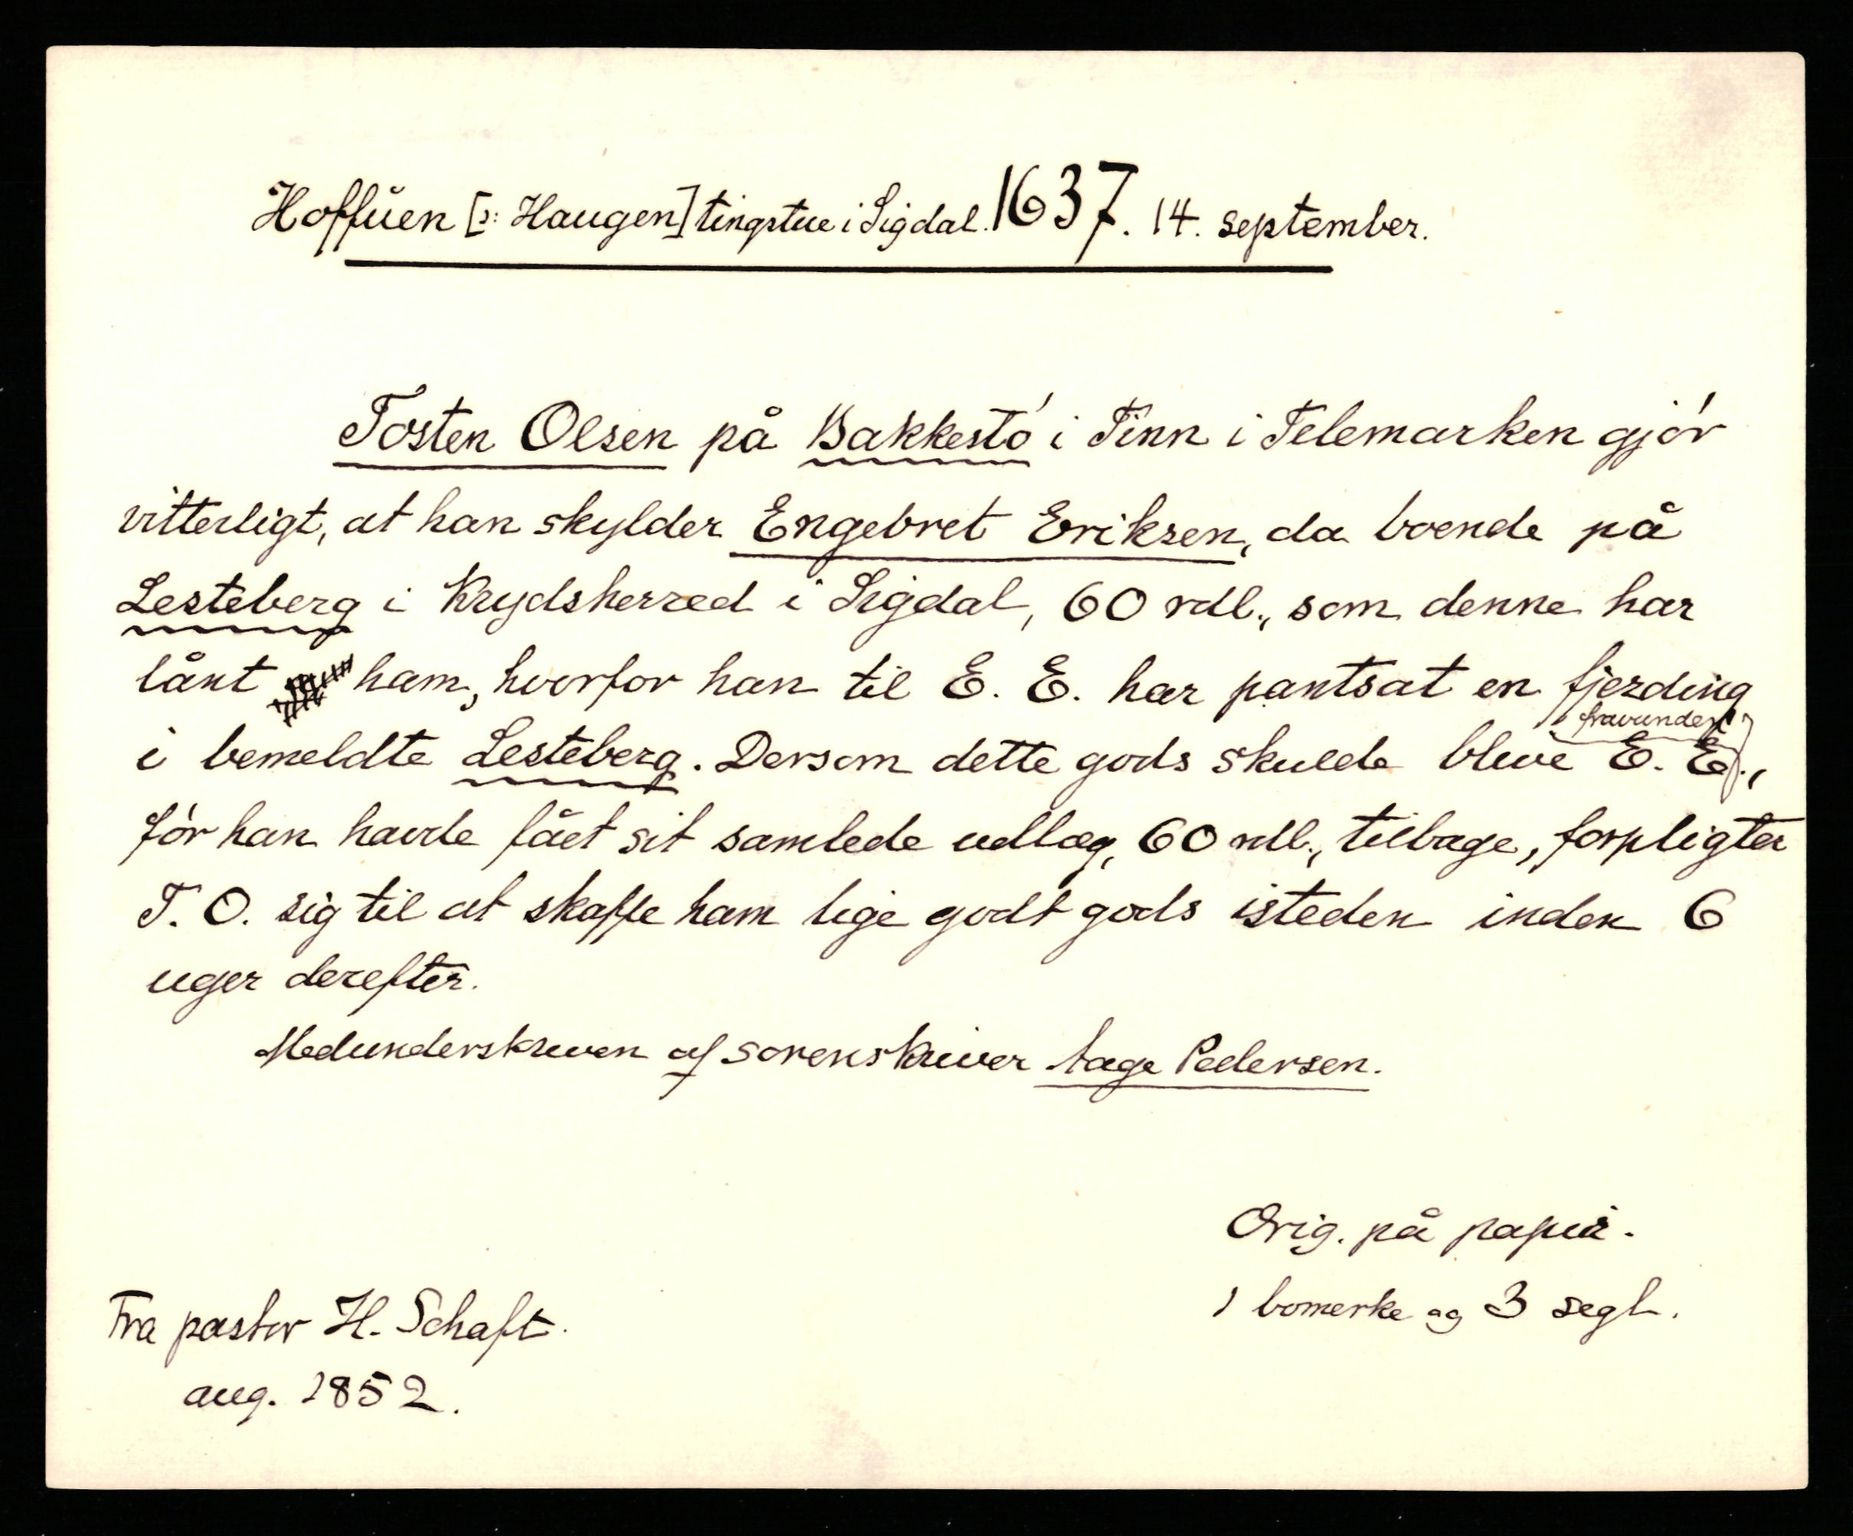 Hoffůen [ɔ: Haugen] tingstue i Sigdal. 1637. 14. september.
Tosten Olsen på Bakkestó i Tinn i Telemarken gjór
vitterligt, at han skylder Engebret Eriksen, da boende på
Lesteberg i Krydsherred i Sigdal, 60 rdl., som denne har
lånt ham, hvorfor han til E. E. har pantsat en fjerding
i bemeldte Lesteberg. Dersom dette gods skulde blive E. E.,
fravunden
fór han havde fået sit samlede udlæg, 60 rdl., tilbage, forpligter
T. O. sig til at skaffe ham lige godt gods isteden inden 6
uger derefter.
Medunderskreven af sorenskriver Aage Pedersen.
Orig. på papir.
1 bomerke og 3 segl.
Fra pastor H. Schaft.
aug. 1852.